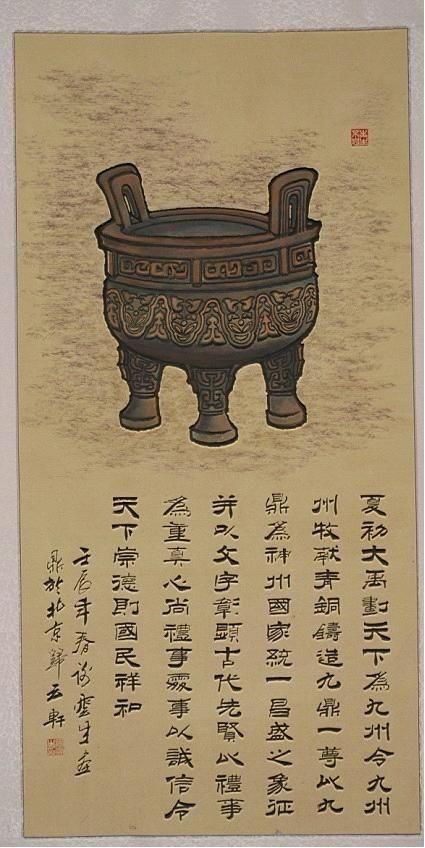 夏初大禹劃天下為九州令九州
州牧献青銅鑄造九鼎一尊此九
鼎為神州國家統一昌盛之象征
并以文字彰顯古代先賢以禮事
為重真心尚禮事爰事以誠信令
天下崇德則國民祥和
壬辰年春 雲生画
鼎於北京歸云軒